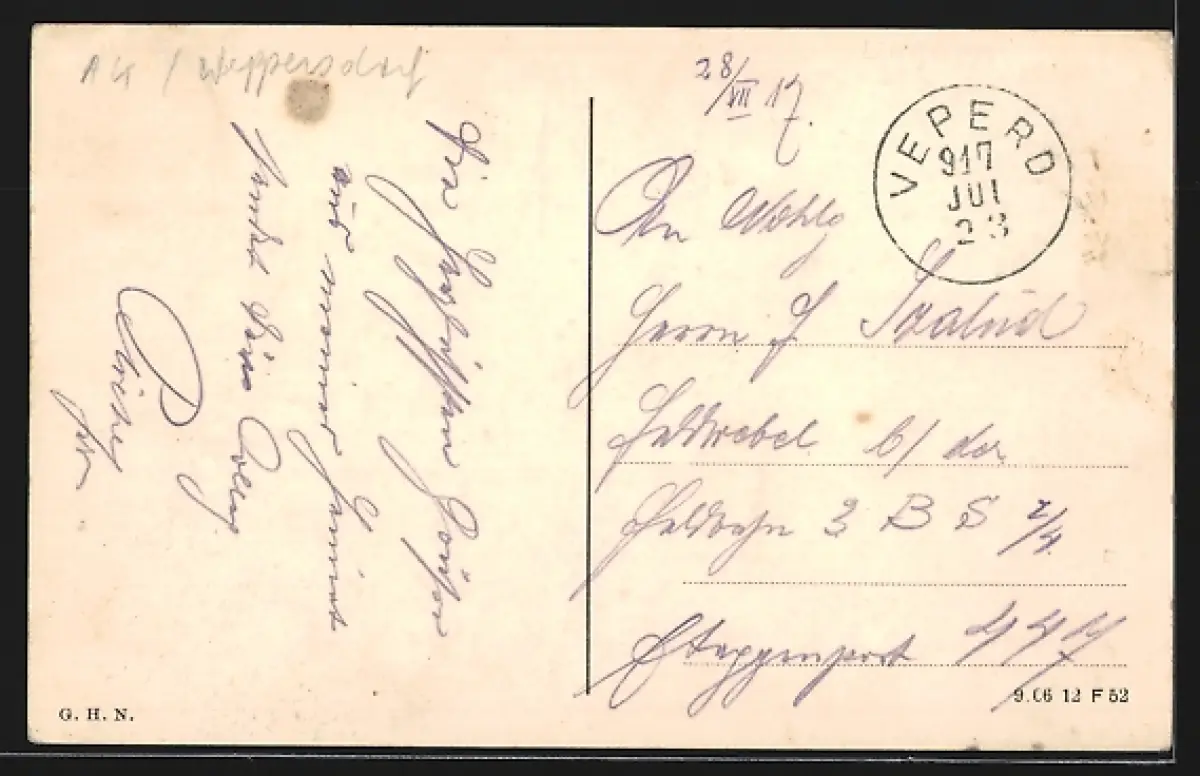 A4 / Weppersdorf
28/VII 17.
VEPERD
917
JUL
23
An Wohlg
Herrn J
Feldwebel b/ der
Feldbahn 3 B S
Etappenpost 444
Die herzlichsten Grüße
aus meiner Heimat
sendet Dir
G. H. N.
9.06 12 F 52